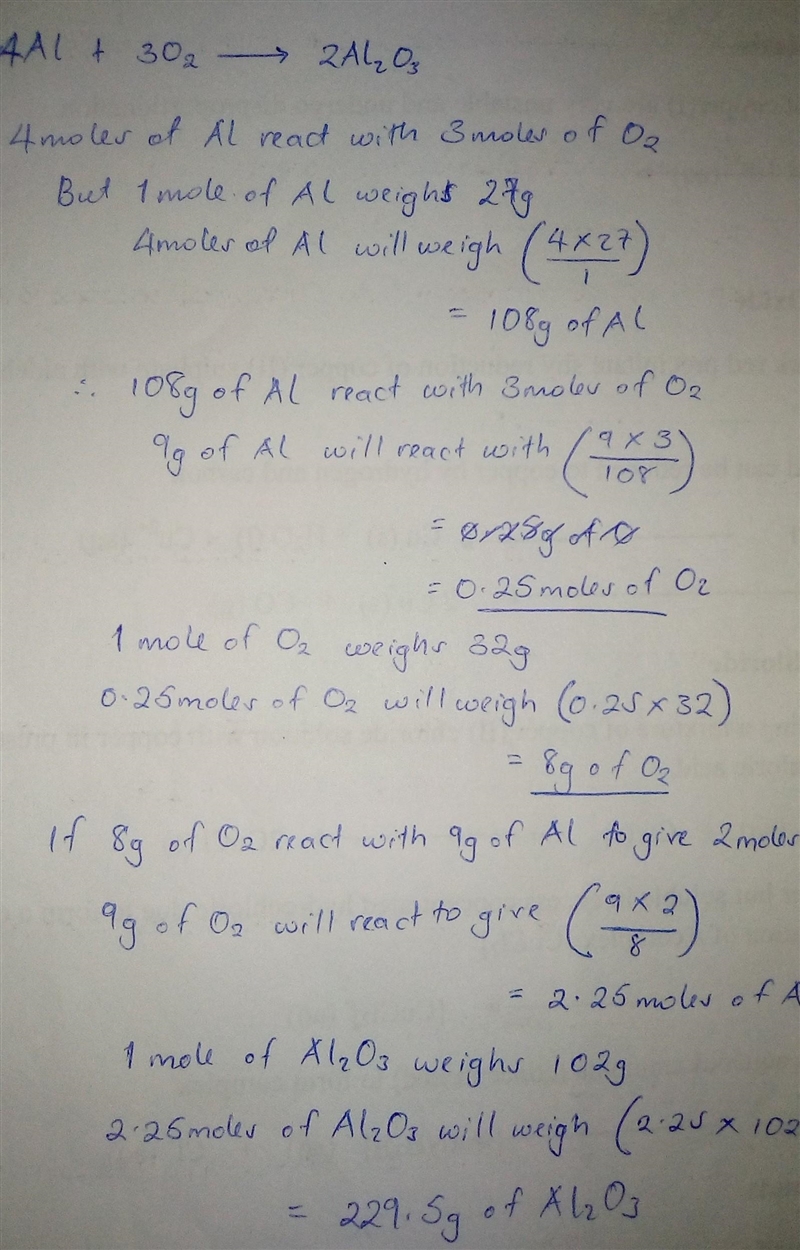 4Al + 3O₂ ⟶ 2Al₂O₃
4moles of Al react with 3moles of O₂
But 1mole of Al weighs 27g
4moles of Al will weigh (4 × 27 / 1)
= 108g of Al
∴ 108g of Al react with 3moles of O₂
9g of Al will react with (9 × 3 / 108)
= 0.25g of O
= 0.25moles of O₂
1 mole of O₂ weighs 32g
0.25moles of O₂ will weigh (0.25 × 32)
= 8g of O₂
If 8g of O₂ react with 9g of Al to give 2moles
9g of O₂ will react to give (9 × 2 / 8)
= 2.25moles of A
1 mole of Al₂O₃ weighs 102g
2.25moles of Al₂O₃ will weigh (2.25 × 102
= 229.5g of Al₂O₃